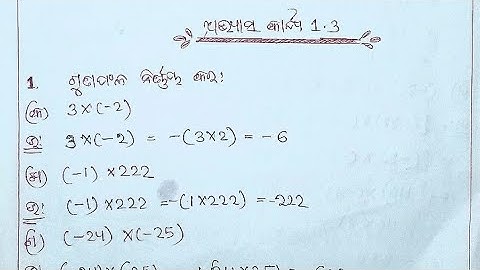 ଅଭ୍ୟାସ କାର୍ଯ୍ୟ 1.3
1. ଗୁଣଫଳ ନିର୍ଣ୍ଣୟ କର।
(କ) 3×(-2)
ଉ: 3×(-2) = -(3×2) = -6
(ଖ) (-1) ×222
ଉ: (-1) ×222 =-(1×222) =-222
(ଗ) (-24) ×(-25)